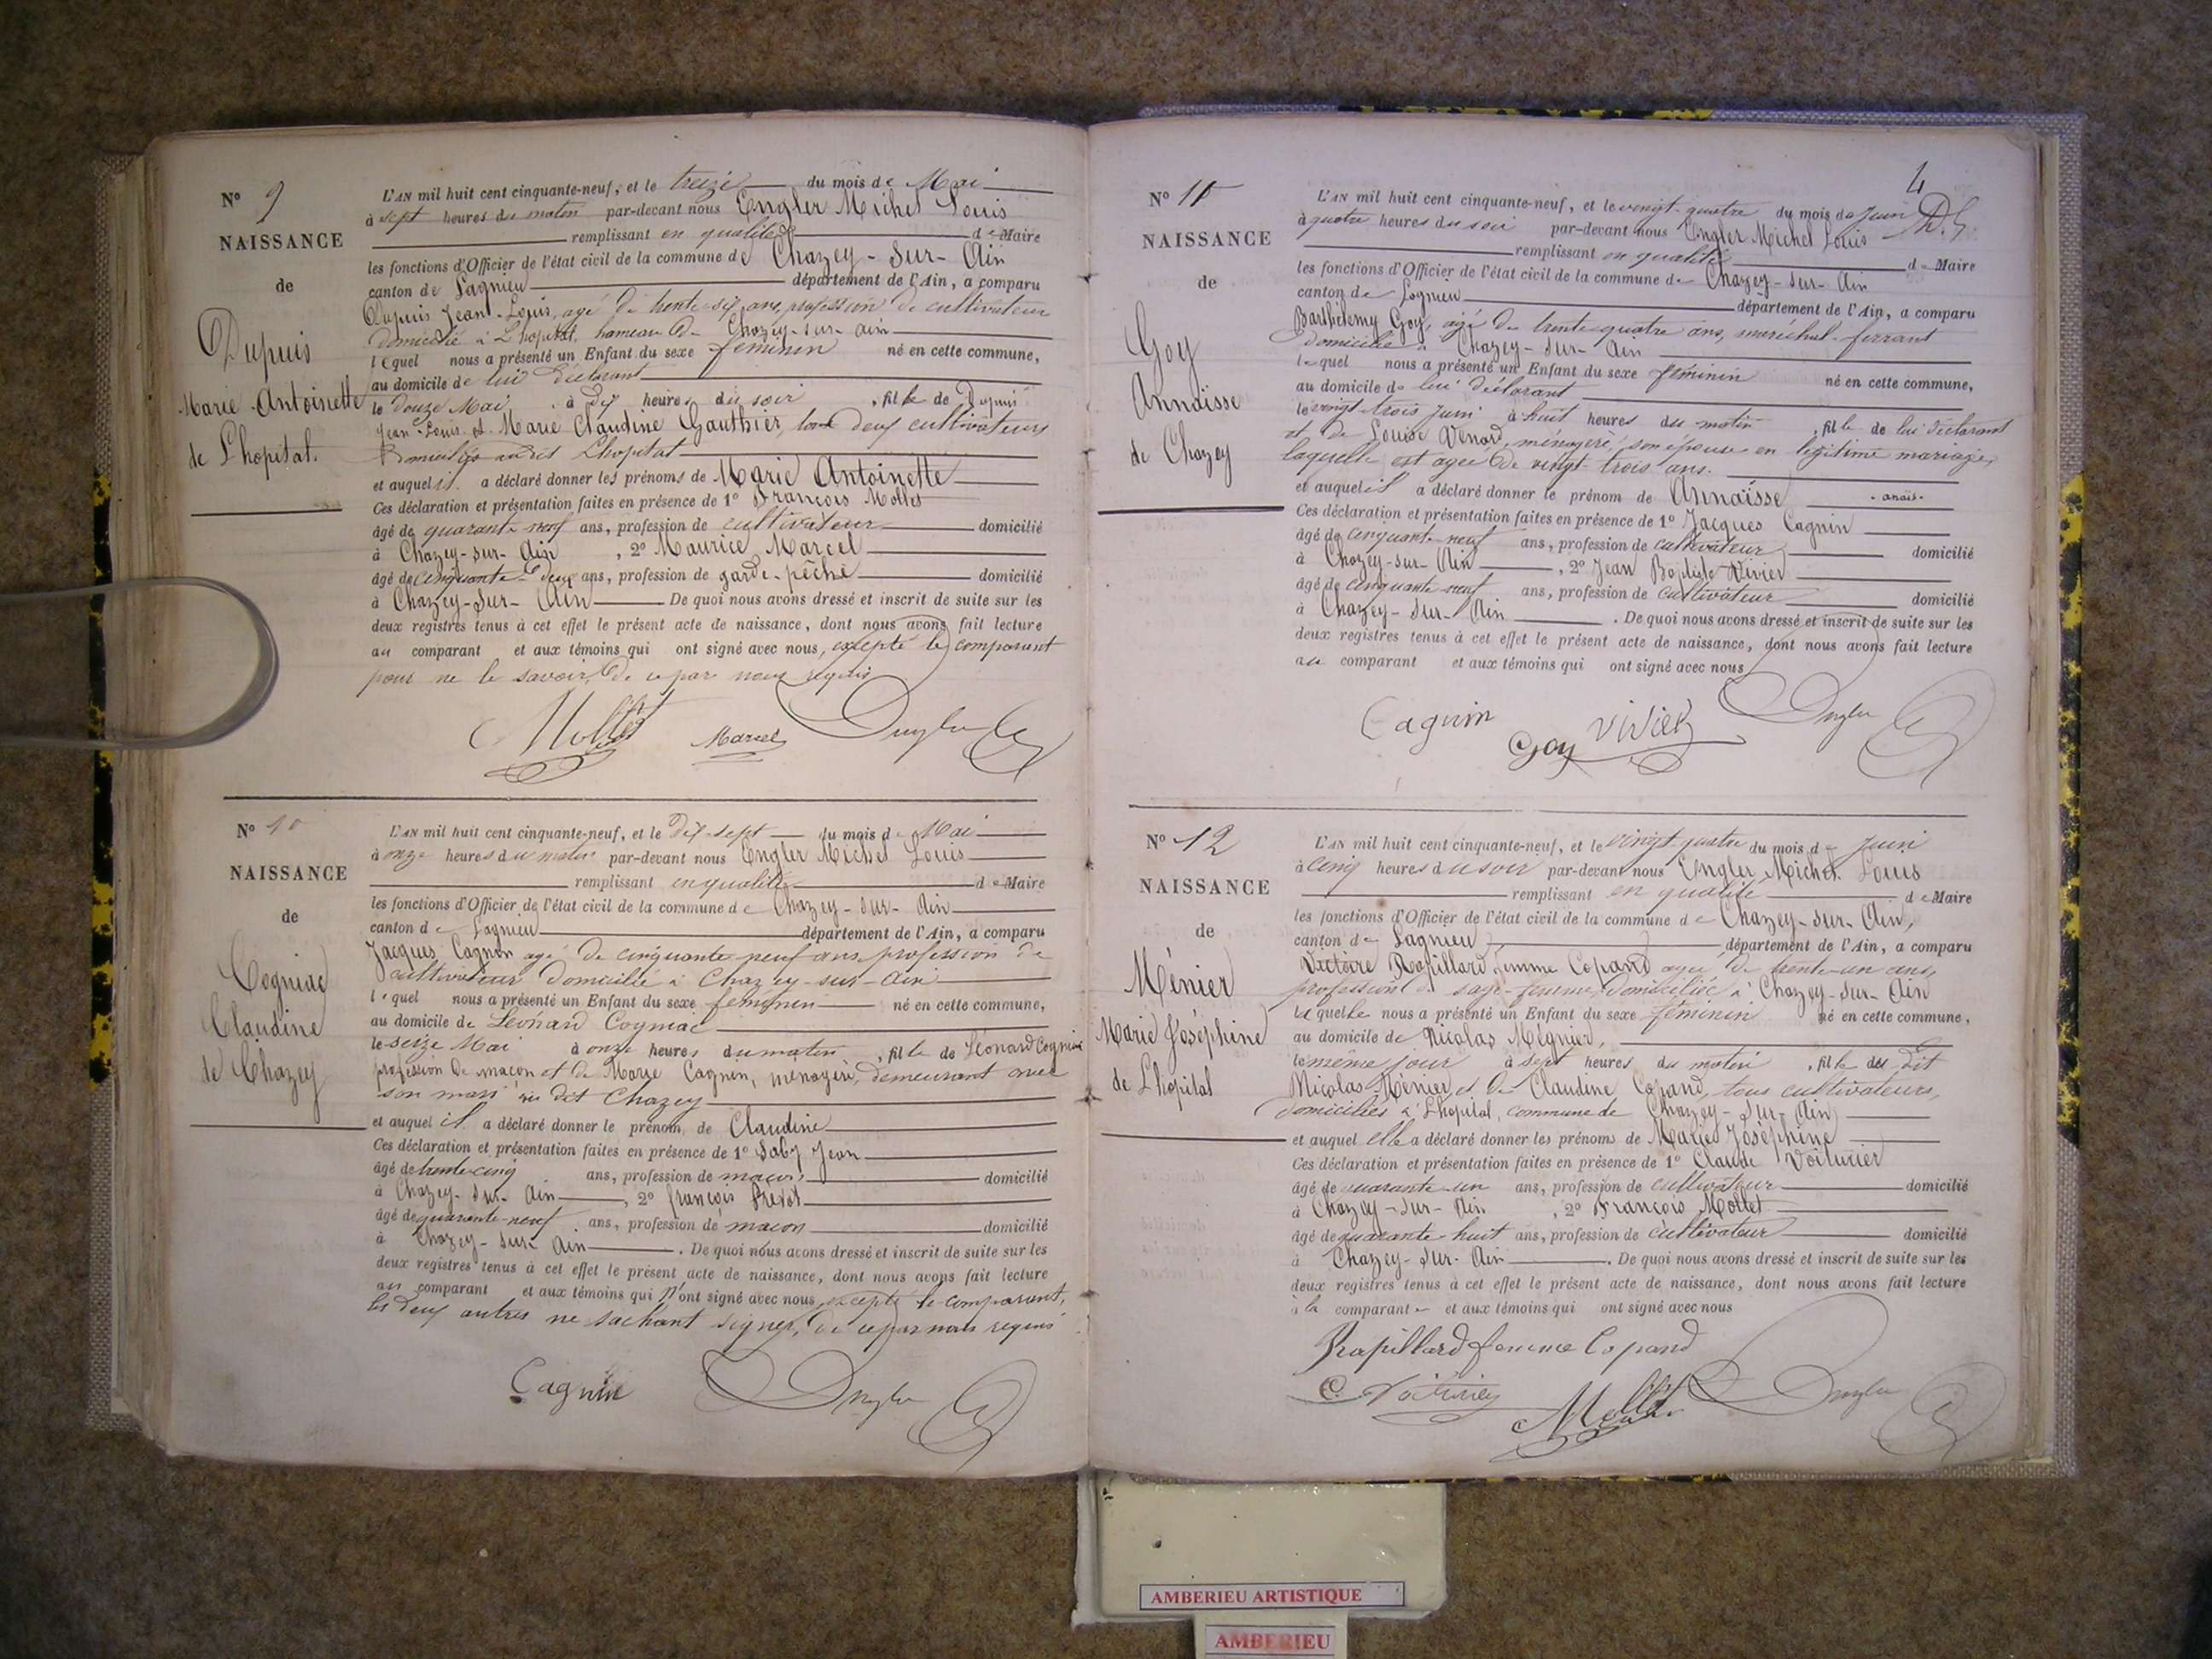 N° 9
NAISSANCE
de
Dupuis
Marie Antoinette
de L'hopital.
L'AN mil huit cent cinquante-neuf, et le treize du mois de Mai
à sept heures du matin par-devant nous Engler Michel Louis
remplissant en qualité de Maire
les fonctions d'Officier de l'état civil de la commune de Chazey-sur-Ain
canton de Lagnieu département de l'Ain, a comparu
Dupuis Jean-Louis, agé de trente-six ans, profession de cultivateur
domicilié à L'hopital, hameau de Chazey-sur-ain
lequel nous a présenté un Enfant du sexe féminin né en cette commune,
au domicile de lui déclarant
le douze Mai à dix heures du soir, fille de Dupuis
Jean-Louis et Marie Claudine Gauthier, tous deux cultivateurs
domiciliés audit Lhopital
et auquel il a déclaré donner les prénoms de Marie Antoinette
Ces déclaration et présentation faites en présence de 1° François Mollet
âgé de quarante neuf ans, profession de cultivateur domicilié
à Chazey-sur-Ain, 2° Maurice Marcel
âgé de cinquante-deux ans, profession de garde-pêche domicilié
à Chazey-sur-Ain De quoi nous avons dressé et inscrit de suite sur les
deux registres tenus à cet effet le présent acte de naissance, dont nous avons fait lecture
au comparant et aux témoins qui ont signé avec nous, excepté le comparant
pour ne le savoir, de ce par nous requis
Mollet Marcel Engler
N° 10
NAISSANCE
de
Cogniac
Claudine
de Chazey
L'AN mil huit cent cinquante-neuf, et le dix-sept du mois de Mai
à onze heures du matin par-devant nous Engler Michel Louis
remplissant en qualité de Maire
les fonctions d'Officier de l'état civil de la commune de Chazey-sur-Ain
canton de Lagnieu département de l'Ain, a comparu
Jacques Cagnin agé de cinquante-neuf ans profession de
cultivateur domicilié à Chazey-sur-Ain
lequel nous a présenté un Enfant du sexe féminin né en cette commune,
au domicile de Léonard Cogniac
le seize Mai à onze heures du matin, fille de Léonard Cogniac
profession de maçon et de Marie Cagnin, ménagère, demeurant avec
son mari au dit Chazey
et auquel il a déclaré donner le prénom de Claudine
Ces déclaration et présentation faites en présence de 1° Saby Jean
âgé de trente-cinq ans, profession de maçon domicilié
à Chazey-sur-Ain, 2° françois Prevot
âgé de quarante-neuf ans, profession de macon domicilié
à Chazey-sur-Ain. De quoi nous avons dressé et inscrit de suite sur les
deux registres tenus à cet effet le présent acte de naissance, dont nous avons fait lecture
au comparant et aux témoins qui n'ont signé avec nous excepté le comparant,
les deux autres ne sachant signer, de ce par nous requis
Cagnin Engler
4
N° 11
NAISSANCE
de
Goy
Annaïsse
de Chazey
L'AN mil huit cent cinquante-neuf, et le vingt-quatre du mois de Juin
à quatre heures du soir par-devant nous Engler Michel Louis
remplissant en qualité de Maire
les fonctions d'Officier de l'état civil de la commune de Chazey-sur-Ain
canton de Lagnieu département de l'Ain, a comparu
Barthélemy Goy, agé de trente-quatre ans, maréchal-ferrant
domicilié à Chazey-sur-Ain
lequel nous a présenté un Enfant du sexe féminin né en cette commune,
au domicile de lui déclarant
le vingt-trois Juin à huit heures du matin, fille de lui déclarant
et de Louise Venard, ménagère, son épouse en légitime mariage,
laquelle est agée de vingt-trois ans.
et auquel il a déclaré donner le prénom de Annaïsse - anaïs -
Ces déclaration et présentation faites en présence de 1° Jacques Cagnin
âgé de cinquante-neuf ans, profession de cultivateur domicilié
à Chazey-sur-Ain, 2° Jean Baptiste Vivier
âgé de cinquante-neuf ans, profession de cultivateur domicilié
à Chazey-sur-Ain. De quoi nous avons dressé et inscrit de suite sur les
deux registres tenus à cet effet le présent acte de naissance, dont nous avons fait lecture
au comparant et aux témoins qui ont signé avec nous
Cagnin Goy Vivier Engler
N° 12
NAISSANCE
de
Ménier
Marie Joséphine
de Lhopital
L'AN mil huit cent cinquante-neuf, et le vingt quatre du mois de Juin
à cinq heures du soir par-devant nous Engler Michel Louis
remplissant en qualité de Maire
les fonctions d'Officier de l'état civil de la commune de Chazey-sur-Ain,
canton de Lagnieu département de l'Ain, a comparu
Victoire Rapillard, femme Copand agée de trente-un ans,
profession de sage-femme, domiciliée à Chazey-sur-Ain
laquelle nous a présenté un Enfant du sexe féminin né en cette commune,
au domicile de Nicolas Mégnier,
le même jour à sept heures du matin, fille du dit
Nicolas Ménier et de Claudine Copand, tous cultivateurs,
domiciliés à Lhopital, commune de Chazey-sur-Ain
et auquel elle a déclaré donner les prénoms de Marie Joséphine
Ces déclaration et présentation faites en présence de 1° Claude Voiturier
âgé de quarante-un ans, profession de cultivateur domicilié
à Chazey-sur-Ain, 2° François Mollet
âgé de quarante huit ans, profession de cultivateur domicilié
à Chazey-sur-Ain. De quoi nous avons dressé et inscrit de suite sur les
deux registres tenus à cet effet le présent acte de naissance, dont nous avons fait lecture
à la comparante et aux témoins qui ont signé avec nous
Rapillard femme Copand
C. Voiturier Mollet Engler
AMBERIEU ARTISTIQUE
AMBERIEU